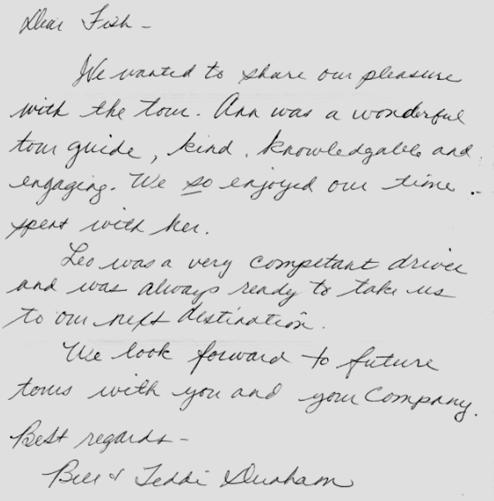 Dear Fish -
We wanted to share our pleasure
with the tour. Ann was a wonderful
tour guide, kind, knowledgable and
engaging. We so enjoyed our time
spent with her.
Leo was a very competant driver
and was always ready to take us
to our next destination.
We look forward to future
tours with you and your Company.
Best regards -
Bill & Teddi Dunham